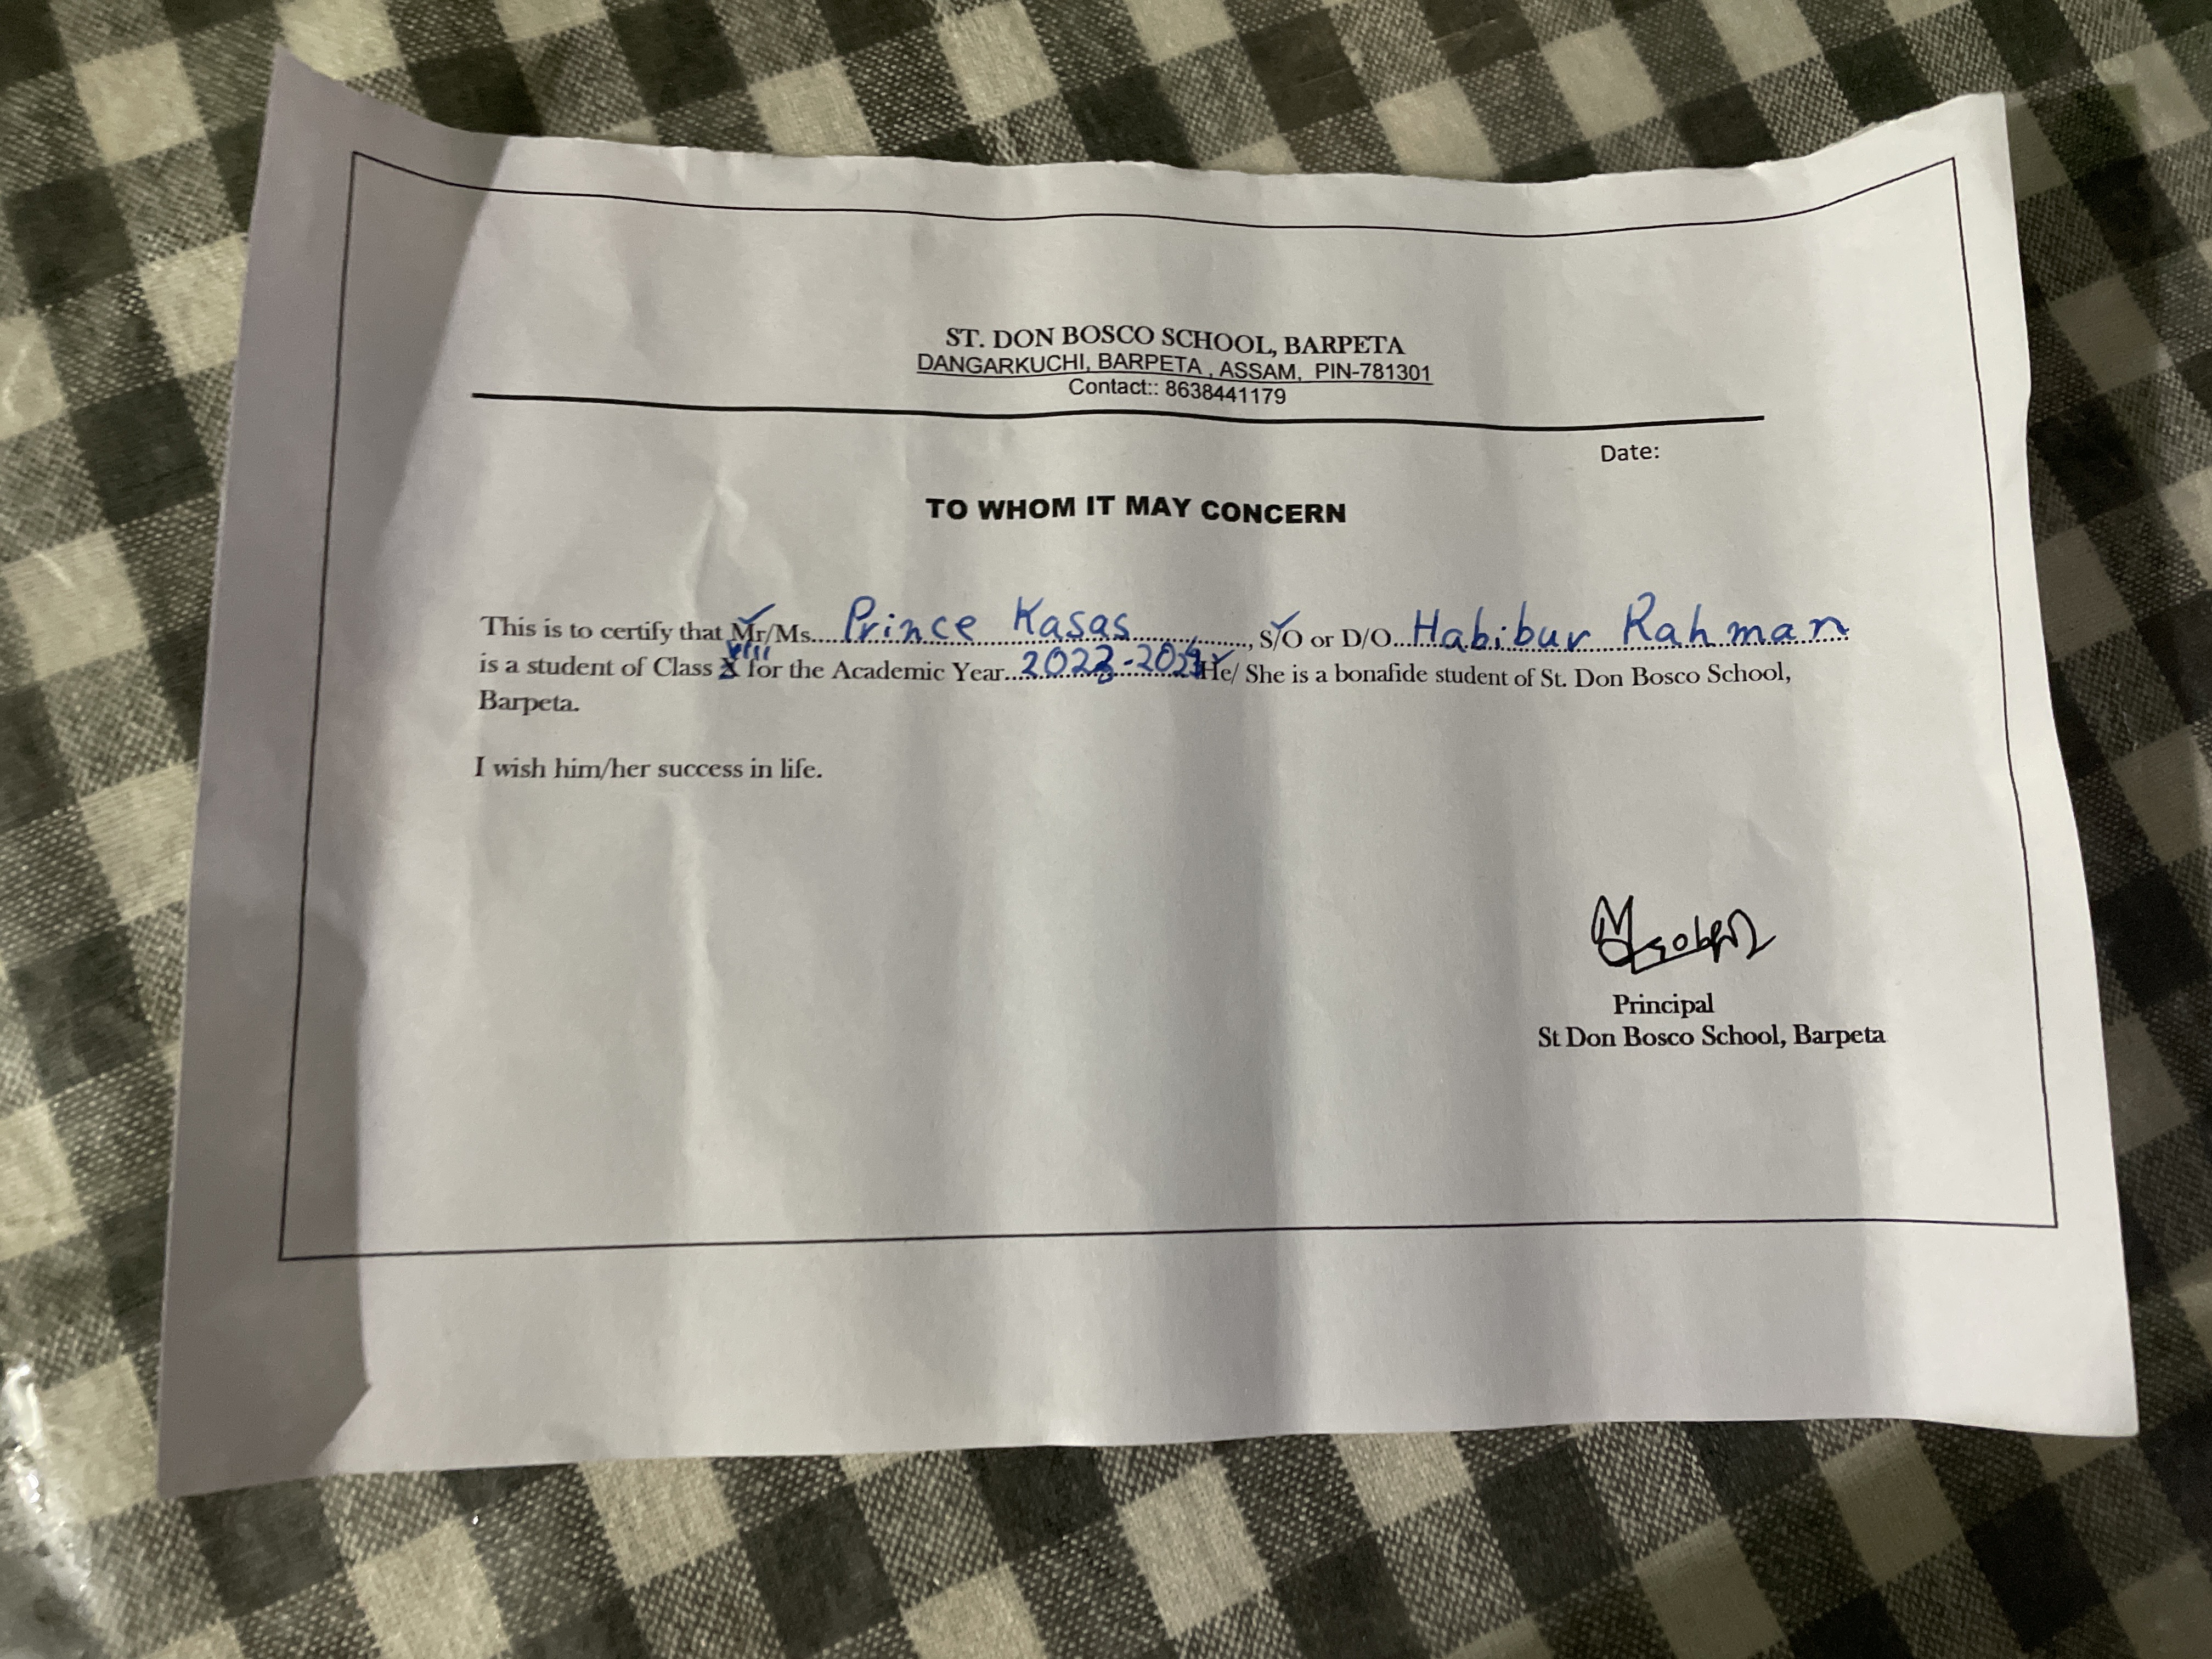 ST. DON BOSCO SCHOOL, BARPETA
DANGARKUCHI, BARPETA, ASSAM, PIN-781301
Contact:: 8638441179
Date:
TO WHOM IT MAY CONCERN
This is to certify that Mr/Ms.....Prince Kasas......, S/O or D/O...Habibur Rahman
VIII
is a student of Class X for the Academic Year...2023-2024 He/ She is a bonafide student of St. Don Bosco School,
Barpeta.
I wish him/her success in life.
Principal
St Don Bosco School, Barpeta